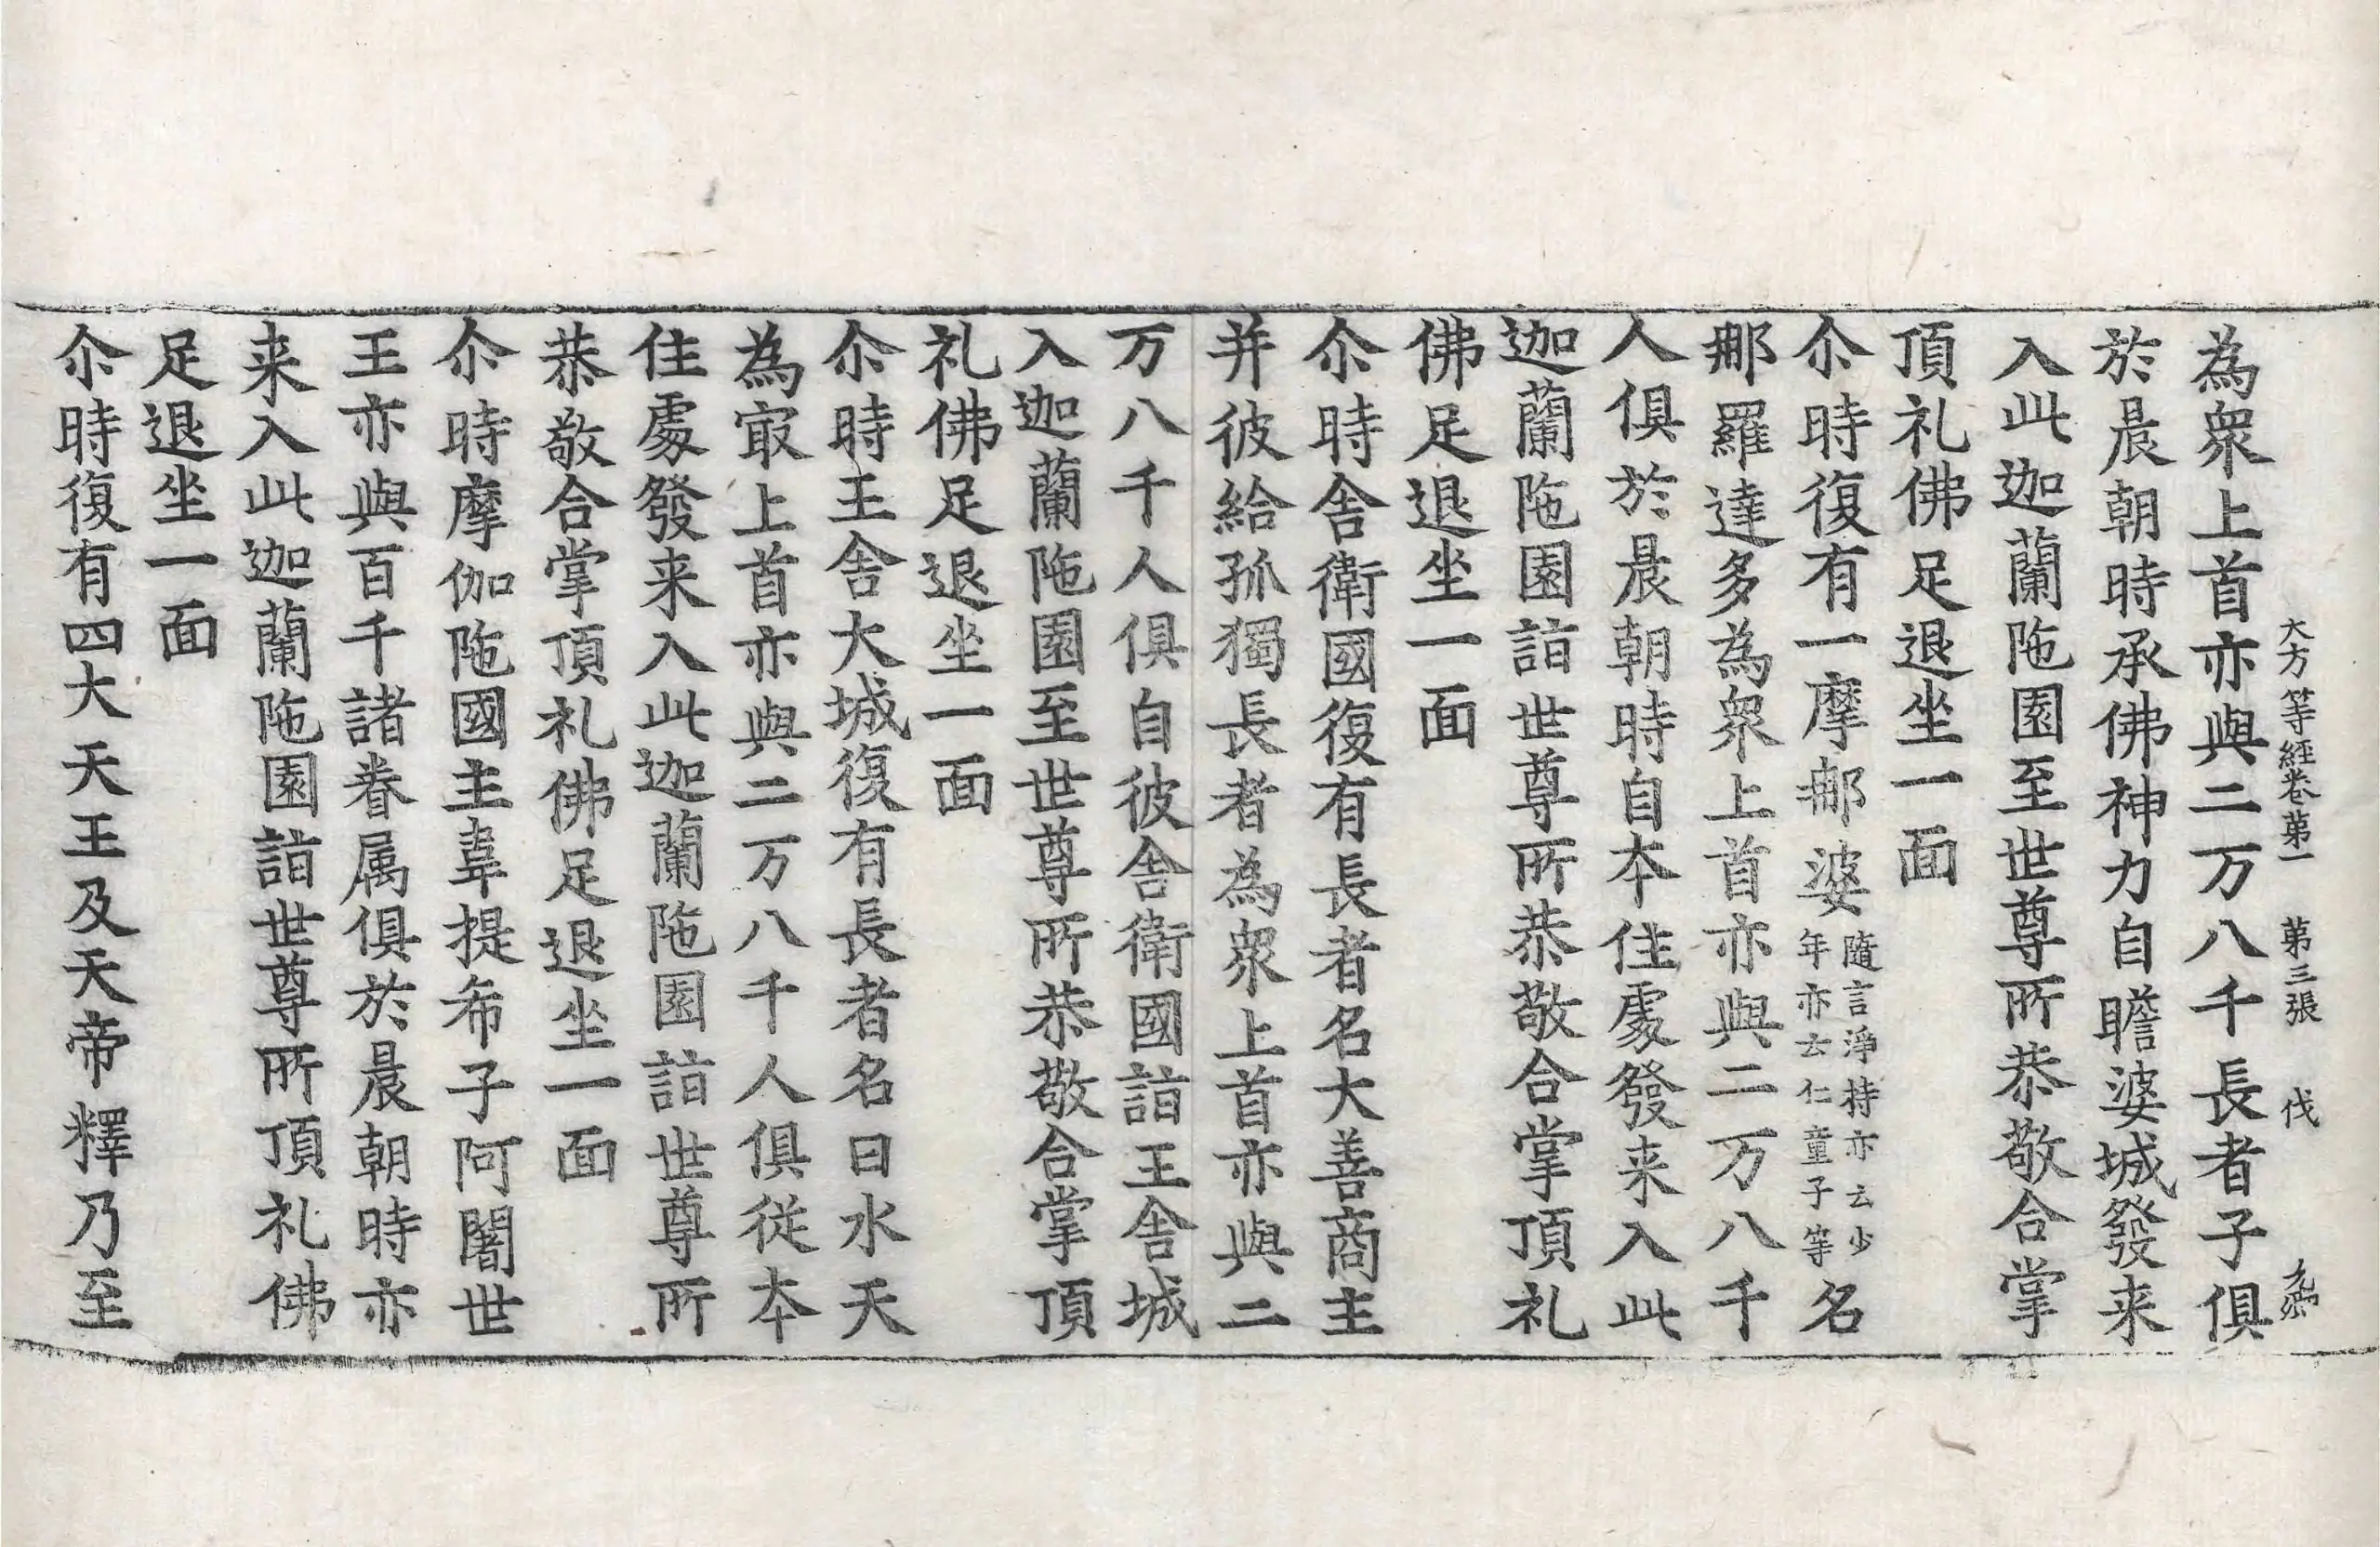 大方等經卷第一 第三張 伐
為衆上首亦與二万八千長者子俱
於晨朝時承佛神力自瞻婆城發来
入此迦蘭陁園至世尊所恭敬合掌
頂礼佛足退坐一面
尒時復有一摩那婆隨言淨持亦云少年亦云仁童子等名
那羅達多為衆上首亦與二万八千
人俱於晨朝時自本住處發来入此
迦蘭陁園詣世尊所恭敬合掌頂礼
佛足退坐一面
尒時舍衛國復有長者名大善商主
并彼給孤獨長者為衆上首亦與二
万八千人俱自彼舍衛國詣王舍城
入迦蘭陁園至世尊所恭敬合掌頂
礼佛足退坐一面
尒時王舍大城復有長者名曰水天
為冣上首亦與二万八千人俱從本
住處發来入此迦蘭陁園詣世尊所
恭敬合掌頂礼佛足退坐一面
尒時摩伽陁國主韋提希子阿闍世
王亦與百千諸眷属俱於晨朝時亦
来入此迦蘭陁園詣世尊所頂礼佛
足退坐一面
尒時復有四大天王及天帝釋乃至